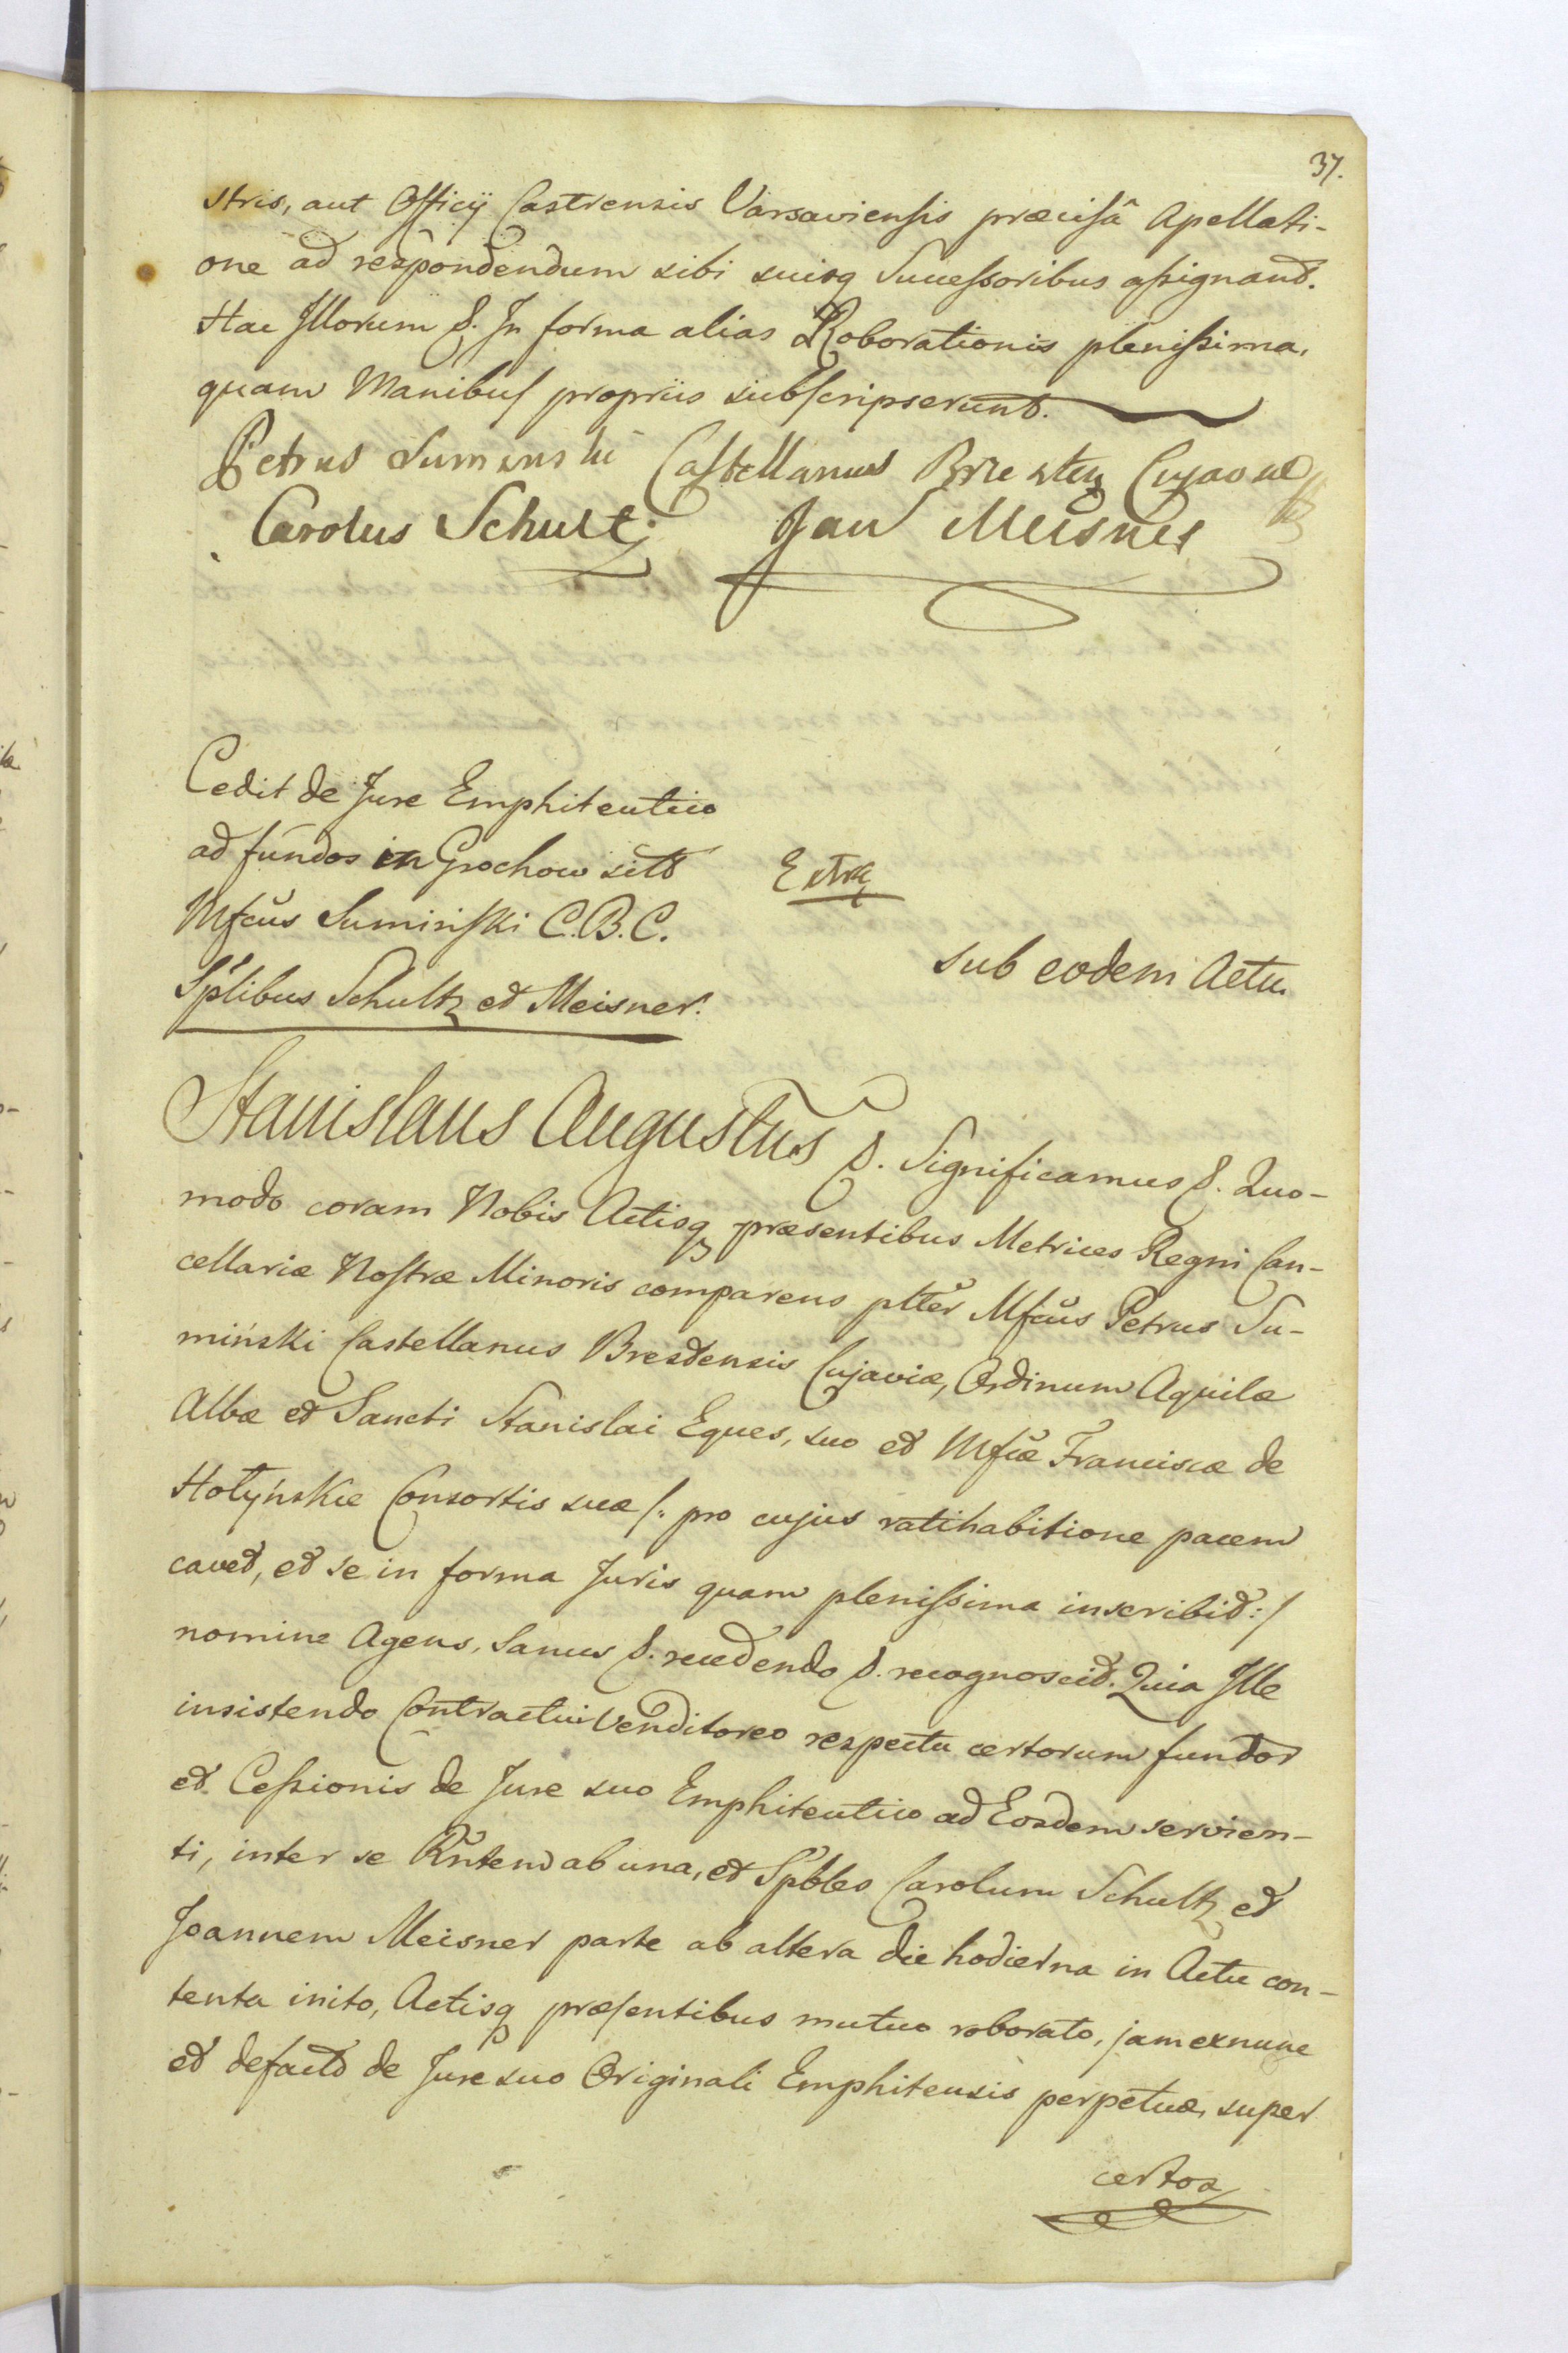 37.
stris, aut Officij Castrensis Varsaviensis præcisâ Apellati-
one ad respondendum sibi suisq Successoribus assignand.
Hac Illorum &. In forma alias Roborationis plenissima,
quam Manibus propriis subscripserunt.
Petrus Suminski Castellanus Brzesten Cujaviæ
Carolus Schultz Jan Meisner
Cedit de Jure Emphiteutico
ad fundos in Grochow sitt
Mfcus Suminski C.B.C.
Sptlibus Schultz et Meisner.
Extr
sub eodem Actu.
Stanislaus Augustus &. Significamus &. Quo-
modo coram Nobis Actisq præsentibus Metrices Regni Can-
cellariæ Nostræ Minoris comparens ptter Mfcus Petrus Su-
miński Castellanus Brestensis Cujaviæ, Ordinum Aquilæ
Albæ et Sancti Stanislai Eques, suo et Mfcæ Franciscæ de
Hołyńskie Consortis suæ /: pro cujus ratihabitione pacem
cavet, et se in forma Juris quam plenissima inscribit :/
nomine Agens, Sanus &. recedendo &. recognoscit. Quia Ille
insistendo Contractui Venditoreo respectu certorum fundor
et Cessionis de Jure suo Emphiteutico ad Eosdem servien-
ti, inter se Rntem ab una, et Spbles Carolum Schultz et
Joannem Meisner parte ab altera die hodierna in Actu con-
tenta inito, Actisq præsentibus mutuo roborato, jam exnunc
et defacto de Jure suo Originali Emphiteusis perpetuæ, super
certos